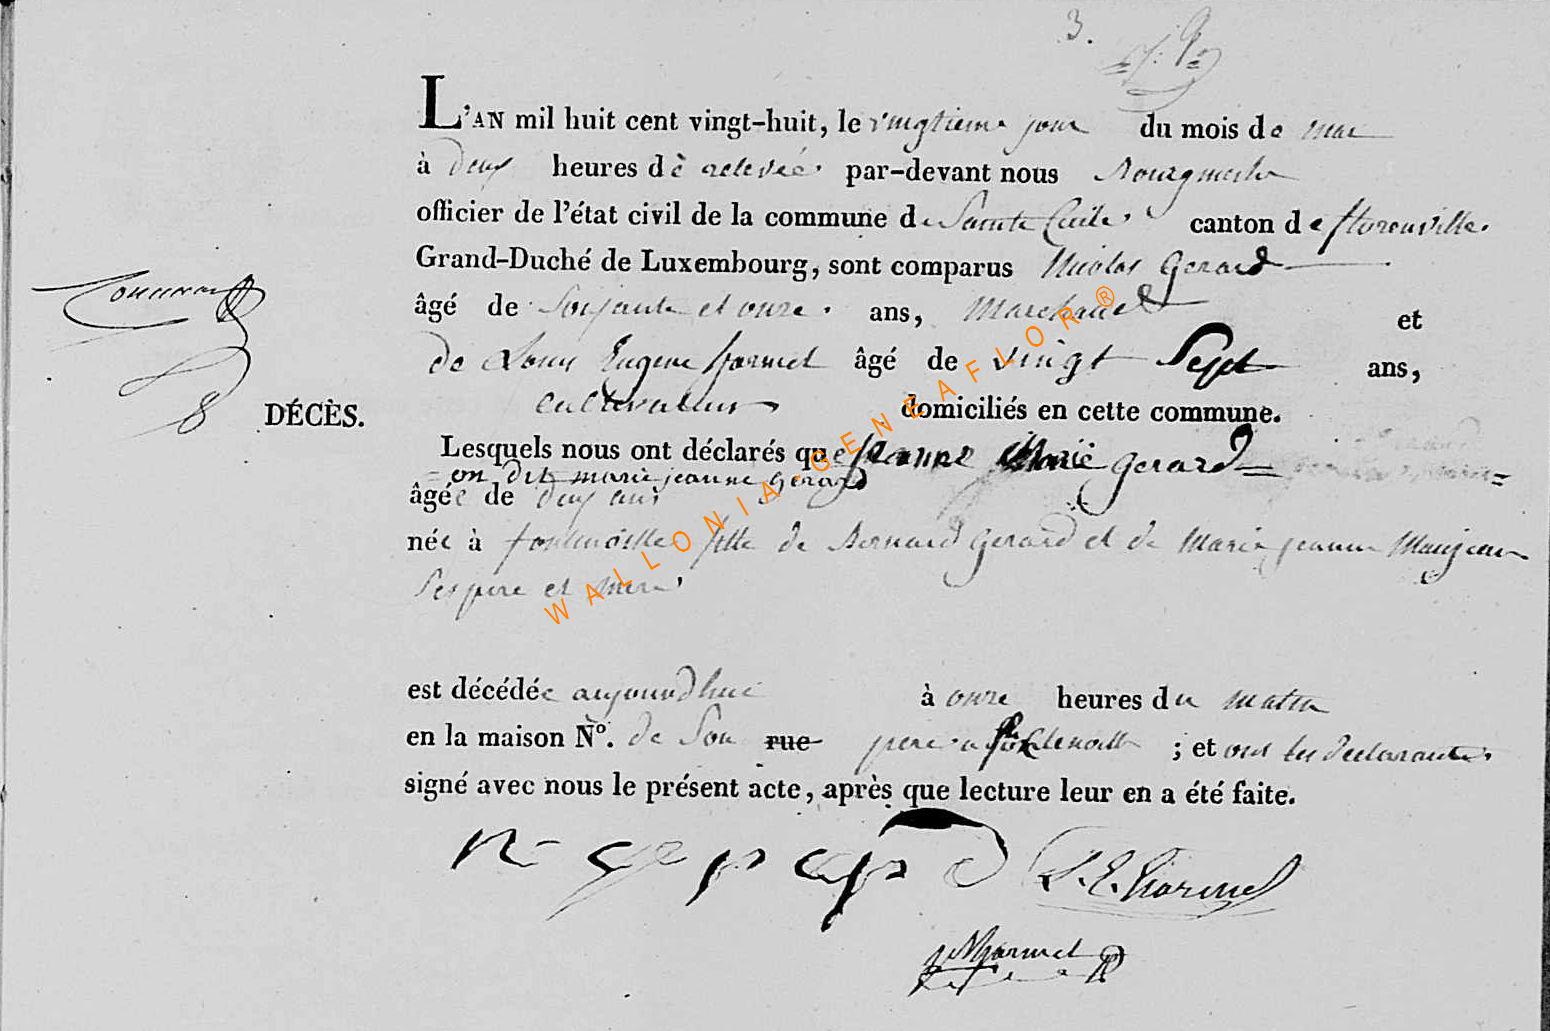 3.
L'AN mil huit cent vingt-huit, le vingtieme jour du mois de mai
à deux heures de relevée par-devant nous Bourgmestre
officier de l'état civil de la commune de Sainte Cecile canton de florenville.
Grand-Duché de Luxembourg, sont comparus Nicolas Gerard
âgé de Soixante et onze ans, Marchand et
de Louis Eugene hormel âgé de vingt Sept ans,
8 DÉCÈS. cultivateur domiciliés en cette commune.
Lesquels nous ont déclarés que jeanne Marie gerard =
= on dit marie jeanne gerard
âgée de deux ans
née à fontenoille fille de Bernard Gerard et de Marie jeanne Maujean
Ses pere et mere
est décédée aujourdhui à onze heures du matin
en la maison Nº. de Son rue pere a fontenoille ; et ont les declarants
signé avec nous le présent acte, après que lecture leur en a été faite.
n gerard
WALLONIA-GENEAFLOR®